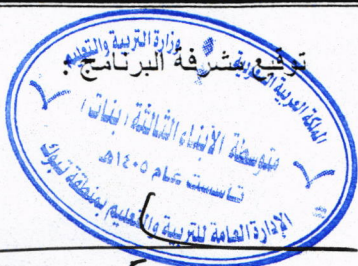 توقيع مشرفة البرنامج :
المملكة العربية السعودية
وزارة التربية والتعليم
متوسطة الأبناء الثالثة (بنات)
تأسست عام ١٤٠٥هـ
الإدارة العامة للتربية والتعليم بمنطقة تبوك